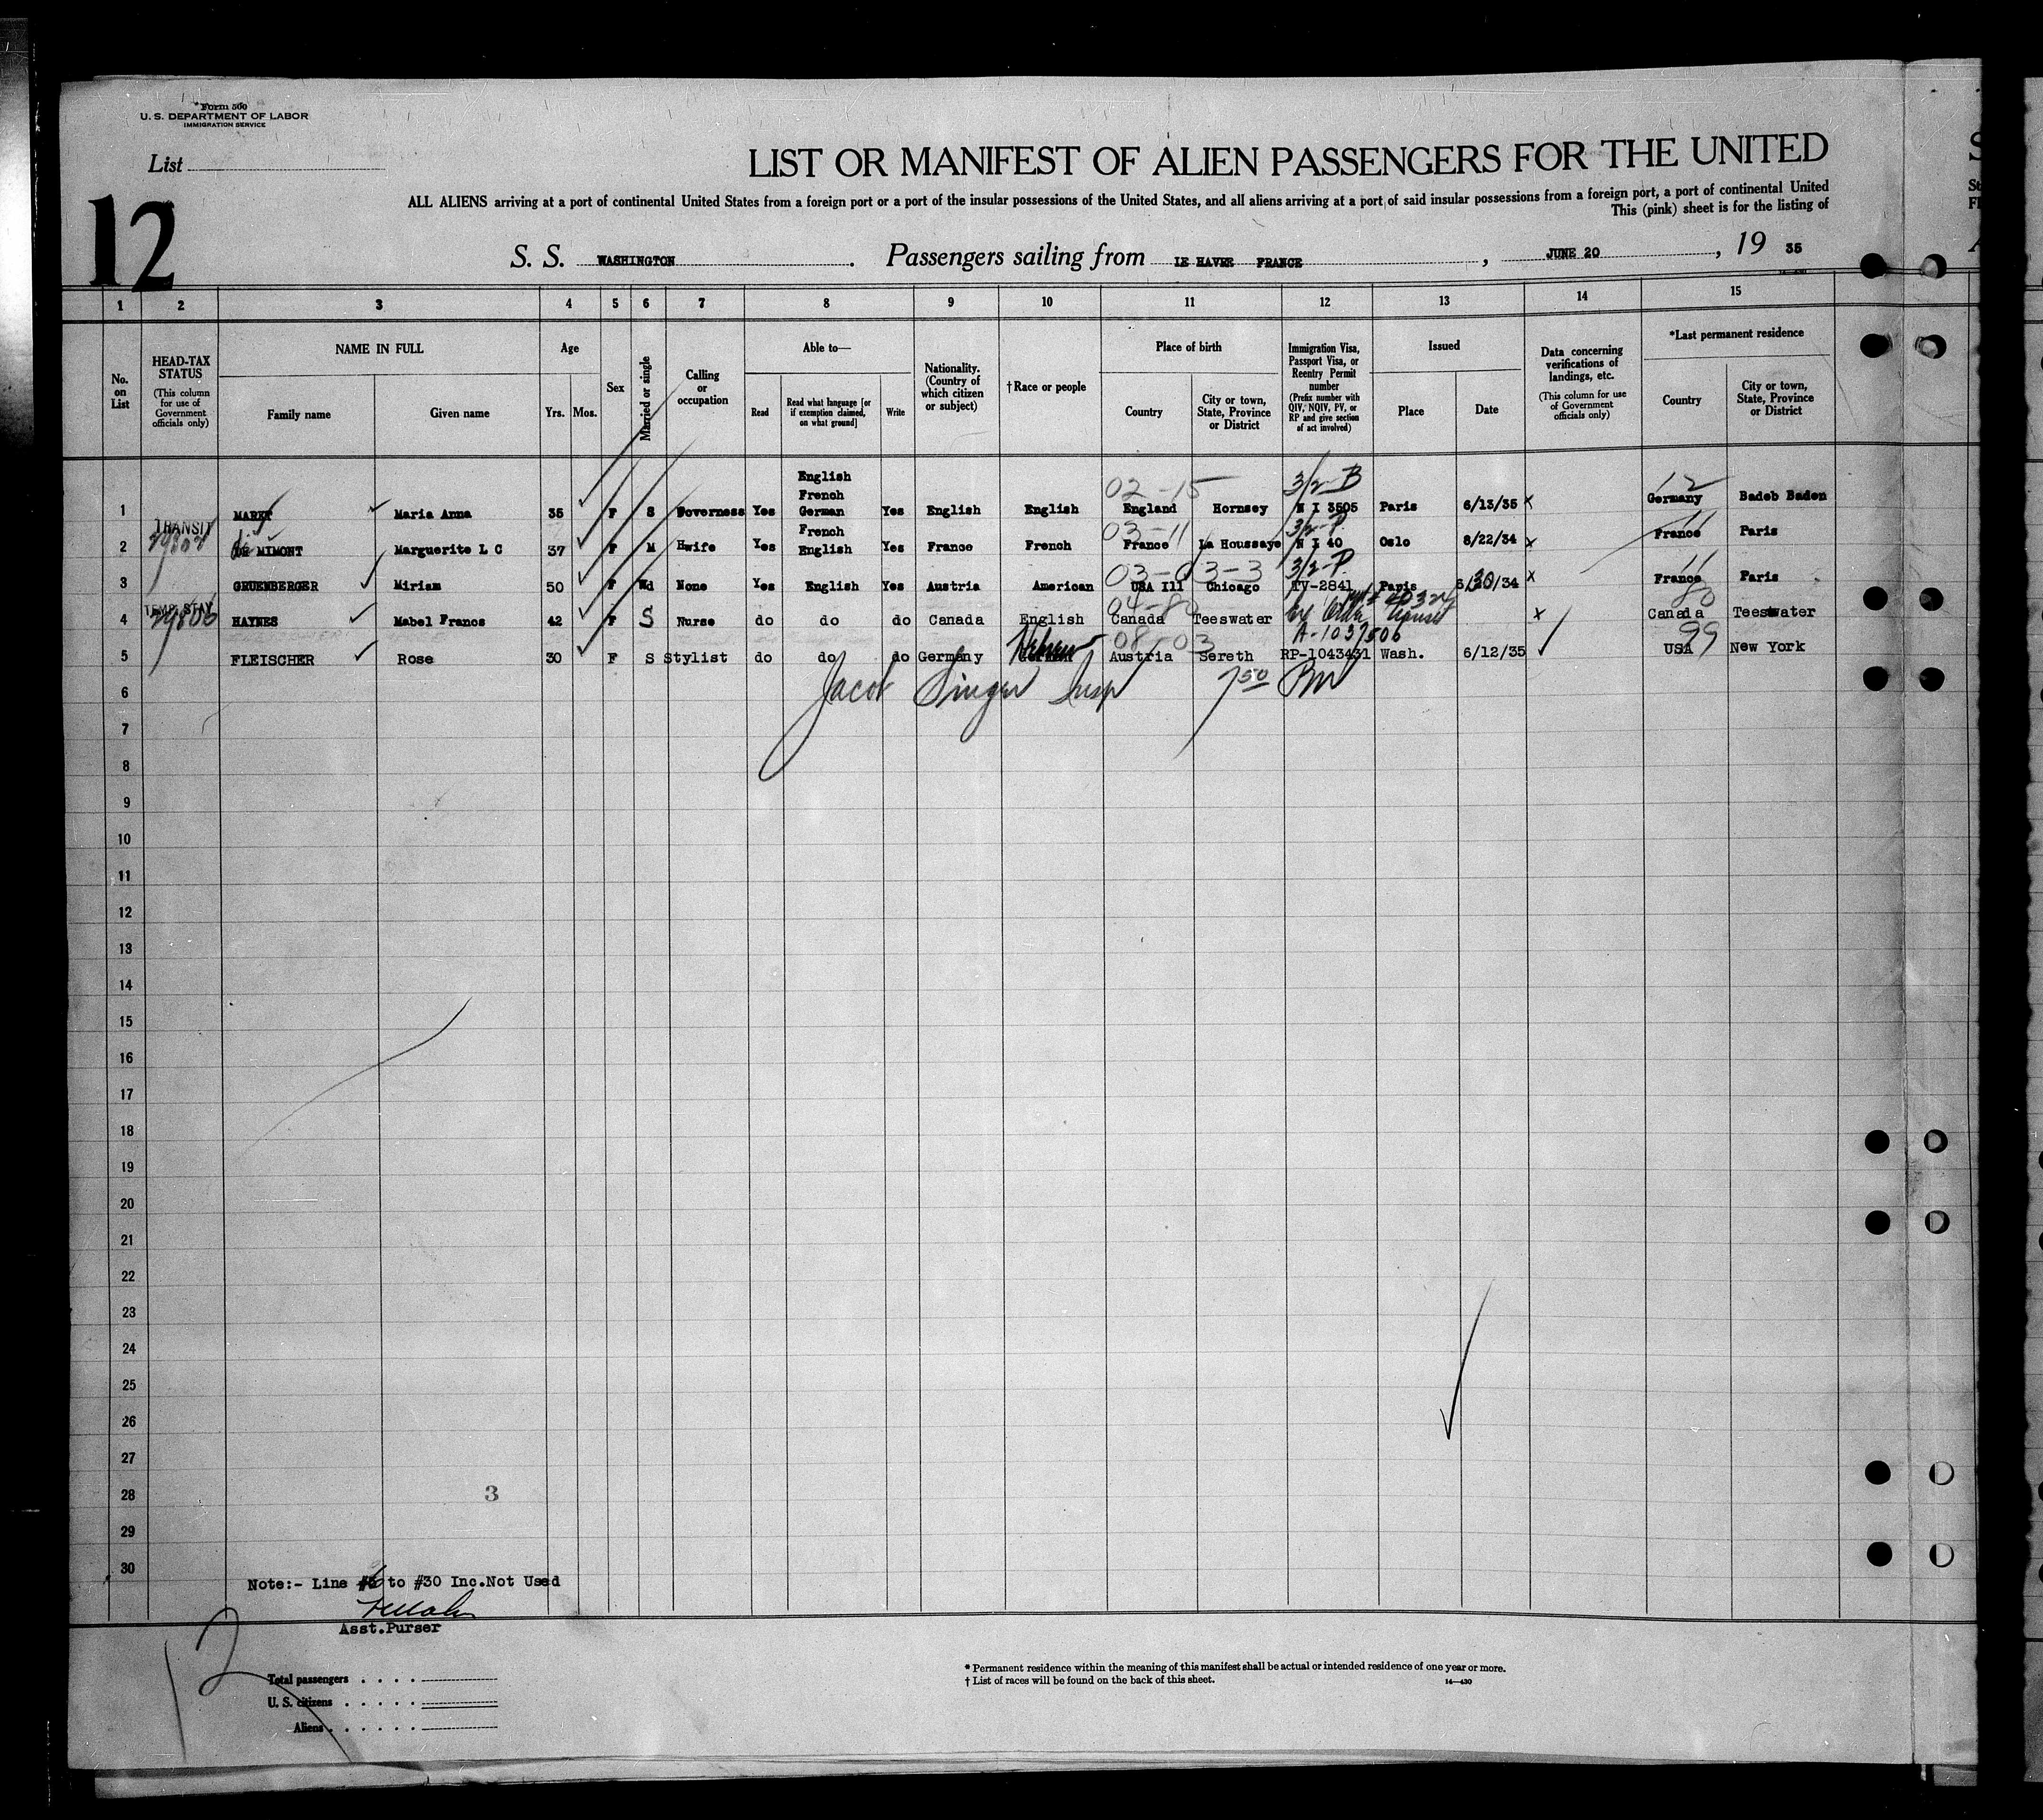 Form 500
U. S. DEPARTMENT OF LABOR
IMMIGRATION SERVICE
List
12
LIST OR MANIFEST OF ALIEN PASSENGERS FOR THE UNITED
ALL ALIENS arriving at a port of continental United States from a foreign port or a port of the insular possessions of the United States, and all aliens arriving at a port of said insular possessions from a foreign port, a port of continental United
This (pink) sheet is for the listing of
S. S. WASHINGTON . Passengers sailing from LE HAVRE FRANCE , JUNE 20 , 19 35
1 2 3 4 5 6 7 8 9 10 11 12 13 14 15
No. on List
HEAD-TAX STATUS
(This column for use of Government officials only)
NAME IN FULL
Family name
Given name
Age
Yrs.
Mos.
Sex
Married or single
Calling or occupation
Able to—
Read
Read what language [or if exemption claimed, on what ground]
Write
Nationality. (Country of which citizen or subject)
†Race or people
Place of birth
Country
City or town, State, Province or District
Immigration Visa, Passport Visa, or Reentry Permit number
(Prefix number with QIV, NQIV, PV, or RP and give section of act involved)
Issued
Place
Date
Data concerning verifications of landings, etc.
(This column for use of Government officials only)
*Last permanent residence
Country
City or town, State, Province or District
02-15 3/2-B 12
1 MARKT Maria Anna 35 F S Governess Yes English French German Yes English English England Hornsey N I 3505 Paris 6/13/35 x Germany Badeb Baden
TRANSIT 03-11 3/2-P. 11
2 DE MIMONT Marguerite L C 37 F M Hwife Yes French English Yes France French France La Houssaye N I 40 Oslo 8/22/34 x France Paris
03-03-3 3/2-P. 11
3 GRUENBERGER Miriam 50 F Wd None Yes English Yes Austria American USA Ill Chicago TV-2841 Paris 6/30/34 x France Paris
TEMP. STAY 04-80 80
4 HAYNES Mabel Franos 42 F S Nurse do do do Canada English Canada Teeswater x Canada Teeswater
08-03 A-1037506 99
5 FLEISCHER Rose 30 F S Stylist do do do Germany Hebrew Austria Sereth RP-1043431 Wash. 6/12/35 USA New York
6 Jacob Singer Insp 7 50
7
8
9
10
11
12
13
14
15
16
17
18
19
20
21
22
23
24
25
26
27
28 3
29
30
Note:- Line #6 to #30 Inc.Not Used
Asst.Purser
12
Total passengers
U. S. citizens
Aliens
* Permanent residence within the meaning of this manifest shall be actual or intended residence of one year or more.
† List of races will be found on the back of this sheet.
14—430